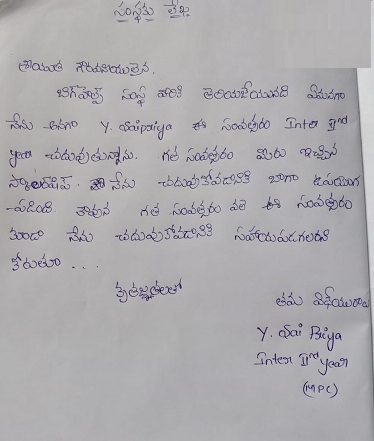 సంస్థకు లేఖ
శ్రీయుత గౌరవనీయులైన,
బిగ్‌హెల్ప్ సంస్థ వారికి తెలియజేయునది ఏమనగా
నేను అనగా Y. Saipriya ఈ సంవత్సరం Inter IInd
year చదువుతున్నాను. గత సంవత్సరం మీరు ఇచ్చిన
స్కాలర్‌షిప్ నేను చదువుకోవడానికి బాగా ఉపయోగ
-పడింది కావున గత సంవత్సరం వలె ఈ సంవత్సరం
కూడా నేను చదువుకోవడానికి సహాయపడగలరని
కోరుతూ ...
కృతజ్ఞతలతో
తమ విధేయురాలు
Y. Sai Priya
Inter IInd year
(MPC)